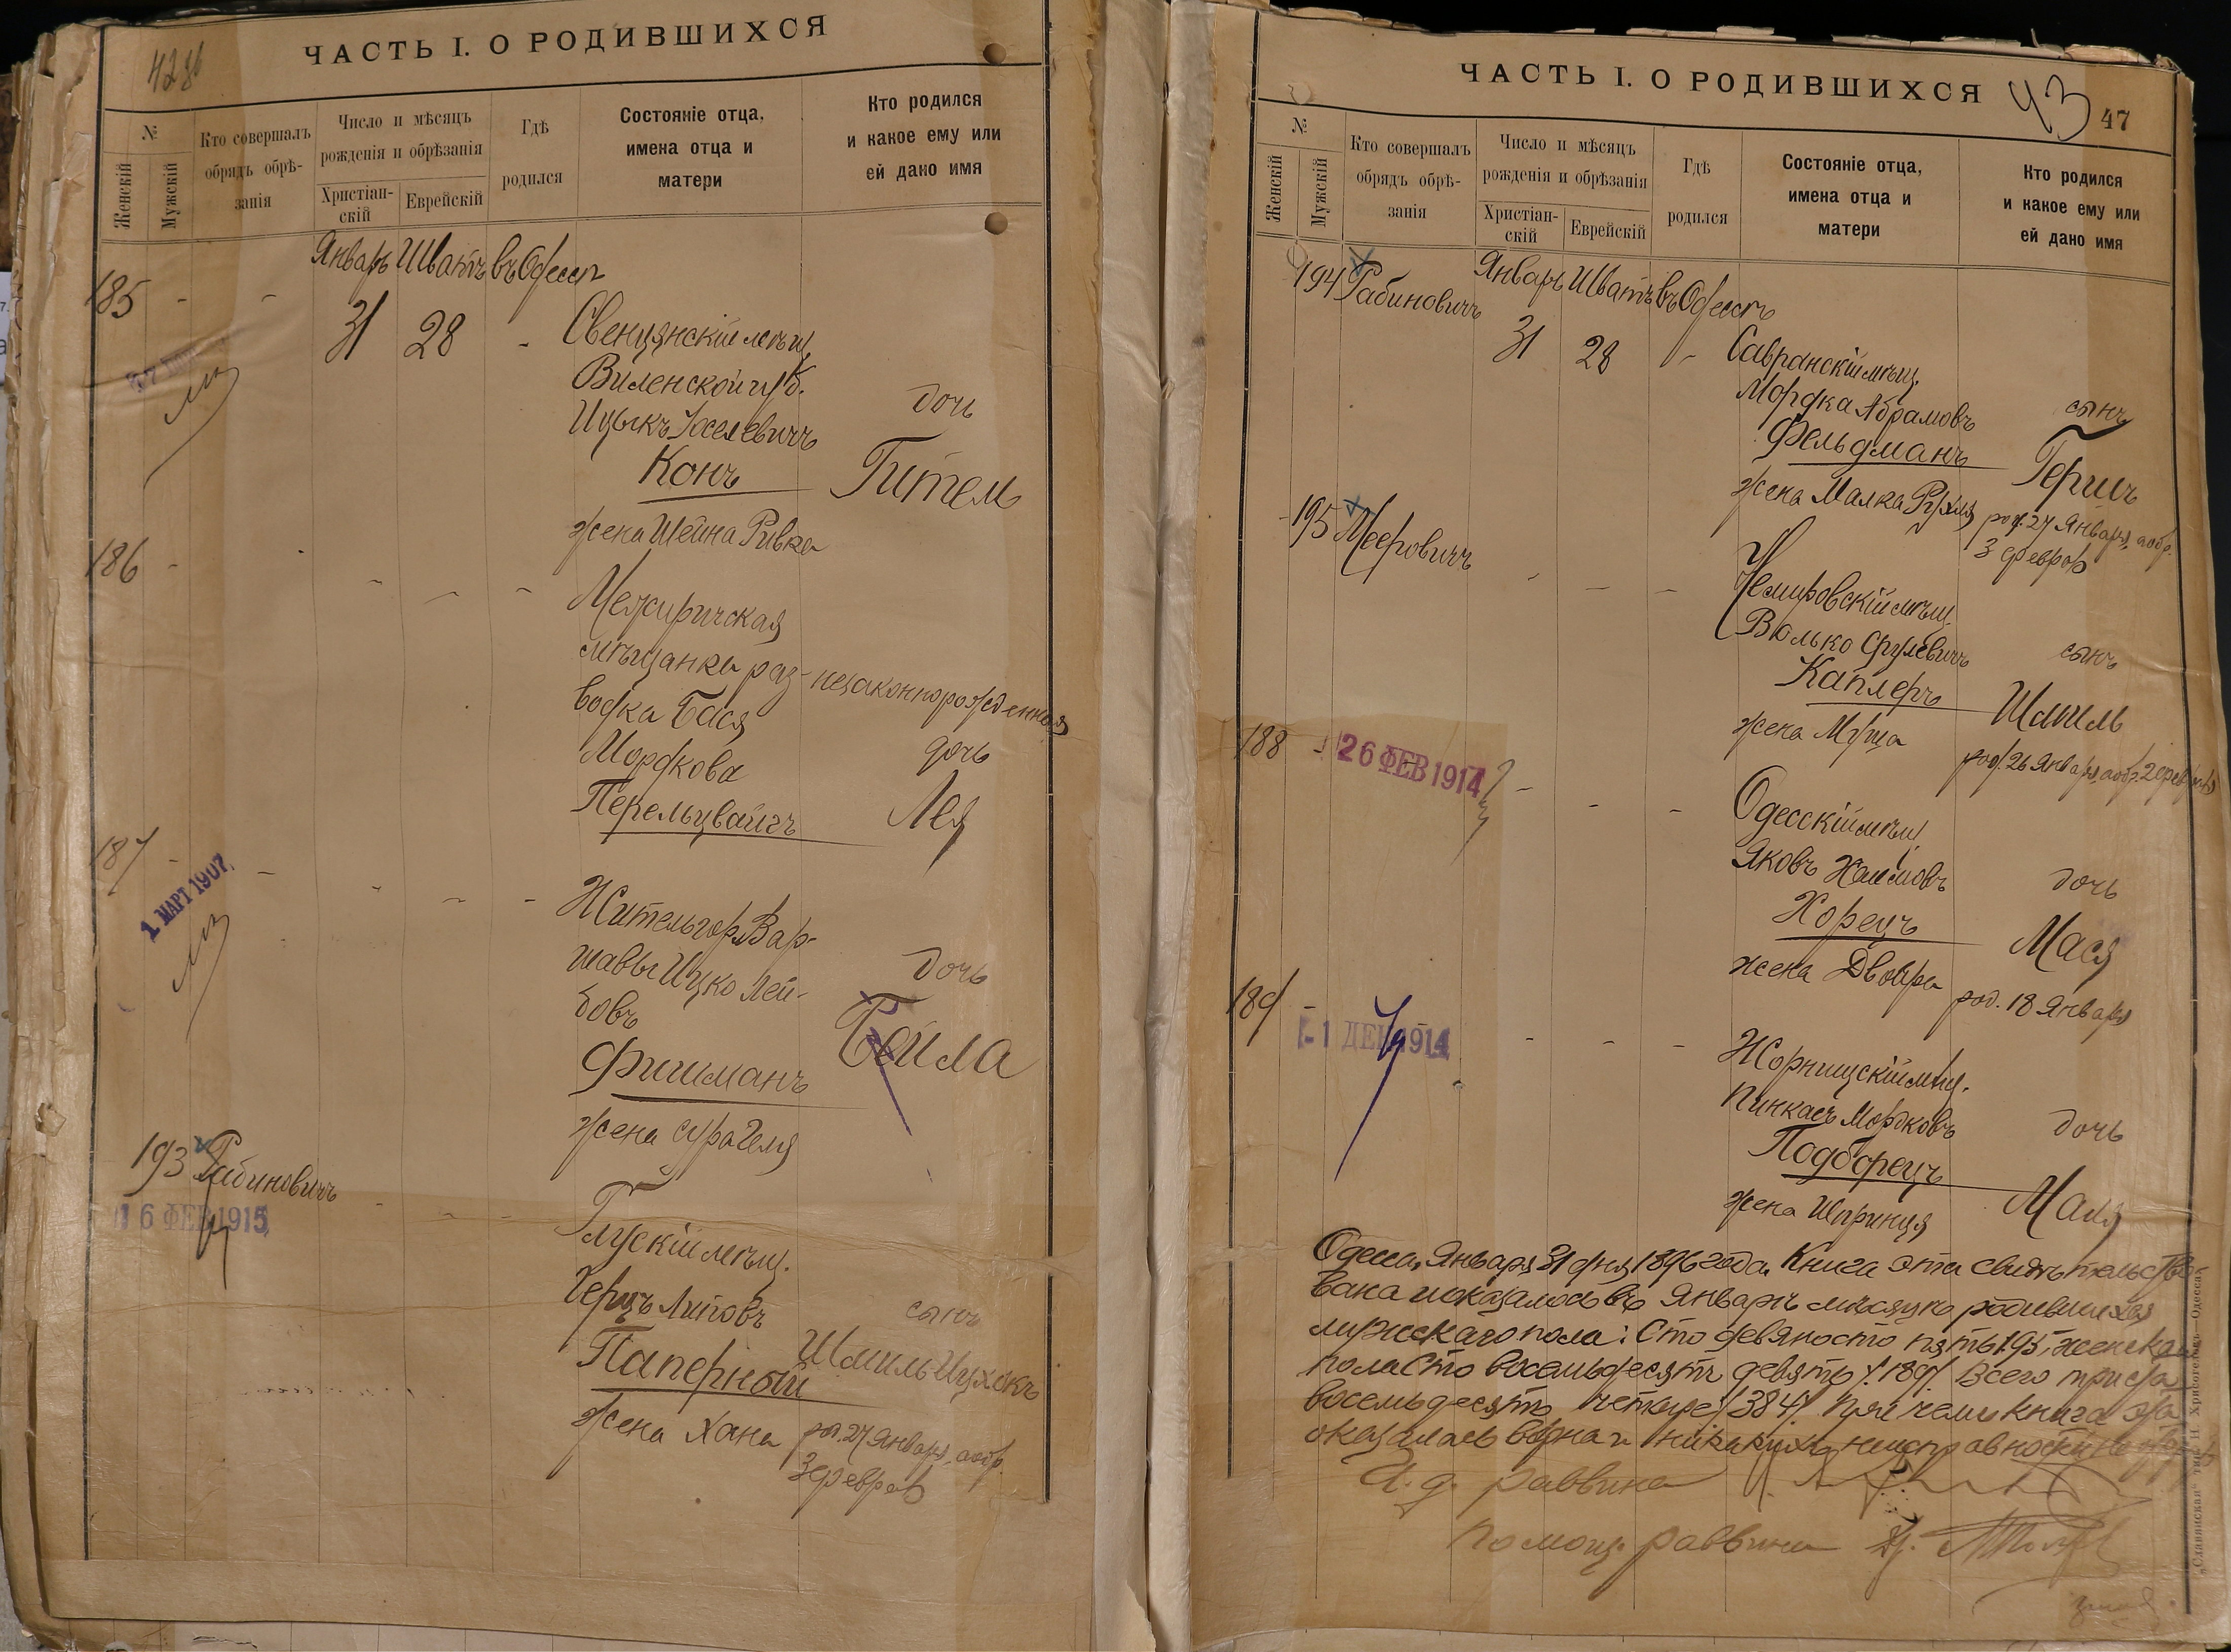 42 об
ЧАСТЬ I. О РОДИВШИХСЯ
№
Женскій
Мужскій
Кто совершалъ
обрядъ обрѣ-
занія
Число и мѣсяцъ
рожденія и обрѣзанія
Христіан-
скій
Еврейскій
Гдѣ
родился
Состояніе отца,
имена отца и
матери
Кто родился
и какое ему или
ей дано имя
Январь Шватъ въ Одессѣ
185 - -
31 28 - Свенцянскій мѣщ.
Виленской губ.
Ицыкъ Іоселевичъ
дочь
Конъ
Гитель
жена Шейна Ривка
186 -
Межиричская
мѣщанка раз-
незаконнорожденная
водка Бася
Мордкова
дочь
Перельцвайгъ
Лея
187 -
1 МАРТ 1907
Житель гор. Вар-
шавы Ицко Лей-
бовъ
дочь
Фишманъ
Бейла
жена Сура Геля
193 Рабиновичъ
16 ФЕВ 1915
Глускій мѣщ.
Герцъ Липовъ
сынъ
Паперный
Шмиль Ицхокъ
жена Хана
род. 27 Января, а обр.
3 февраля
ЧАСТЬ I. О РОДИВШИХСЯ
43
47
№
Женскій
Мужскій
Кто совершалъ
обрядъ обрѣ-
занія
Число и мѣсяцъ
рожденія и обрѣзанія
Христіан-
скій
Еврейскій
Гдѣ
родился
Состояніе отца,
имена отца и
матери
Кто родился
и какое ему или
ей дано имя
Январь Шватъ въ Одессѣ
194 Рабиновичъ
31 28 - Савранскій мѣщ.
Мордка Абрамовъ
сынъ
Фельдманъ
Гершъ
жена Малка Рухля
род. 27 Января, а обр.
3 февраля
195 Мееровичъ
Немировскій мѣщ.
Волько Срулевичъ
сынъ
Каплеръ
Шмиль
жена Муца
род. 26 Января, а обр. 2 февраля
188 -
26 ФЕВ 1914
Одесскій мѣщ.
Яковъ Хаимовъ
дочь
Хорецъ
Мася
жена Двойра
род. 18 Января
189 -
1 ДЕК 1914
Жорнищскій мѣщ.
Пинкасъ Мордковъ
дочь
Подборецъ
Маля
жена Шпринця
Одесса, Января 31 дня 1896 года. Книга эта свидѣтельство-
вана и оказалось въ Январѣ мѣсяцѣ родившихся
мужескаго пола: Сто девяносто пять 195, женскаго
пола Сто восемьдесятъ девять /189/ Всего триста
восемьдесятъ четыре /384/. При чемъ книга эта
оказалась вѣрна и никакихъ неисправностей не
И. д. раввина
Помощ. раввина
„Славянская“ тип. Н. Хрисогелосъ Одесса.